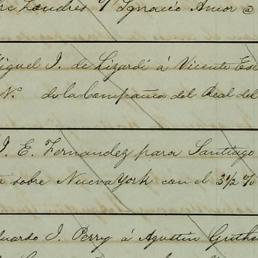 Londres Ignacio Amor @
Miguel J. de Lizardi á Vicente Es
No. de la Compañia del Real del
J. E. Fernandez para Santiago
sobre Nueva York con el 3½ %
Eduardo J. Perry á Agustin Guthe